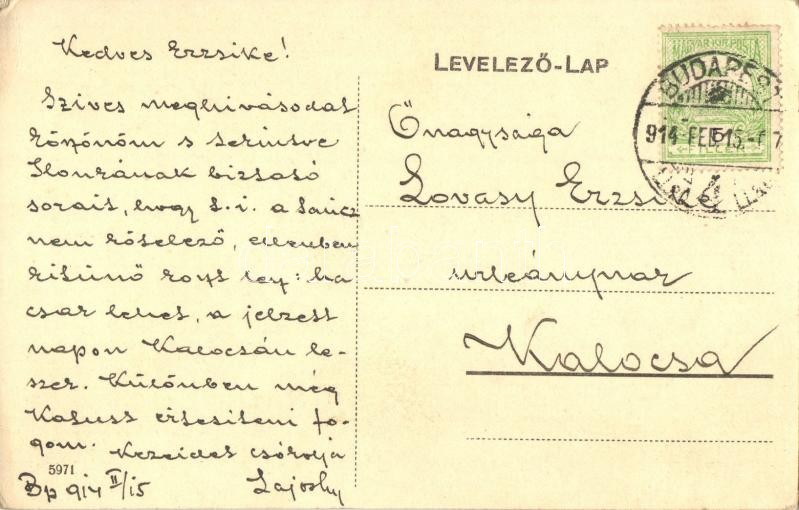 Kedves Erzsike!
Szives meghivásodat
köszönöm s
Ilonkának biztató
sorait, hogy t. i. a tánc
nem kötelező, ellenben
kitünő
csak lehet, a jelzett
napon Kalocsán le-
szek. Különben még
Katust értesiteni fo-
gom. Kezeidet csókolja
5971
Bp 914 II/15
LEVELEZŐ-LAP
MAGYAR KIR. POSTA
BUDAPEST
914 FEB 15
5
4
Őnagysága
Lovasy Erzsike
urleánynak
Kalocsa